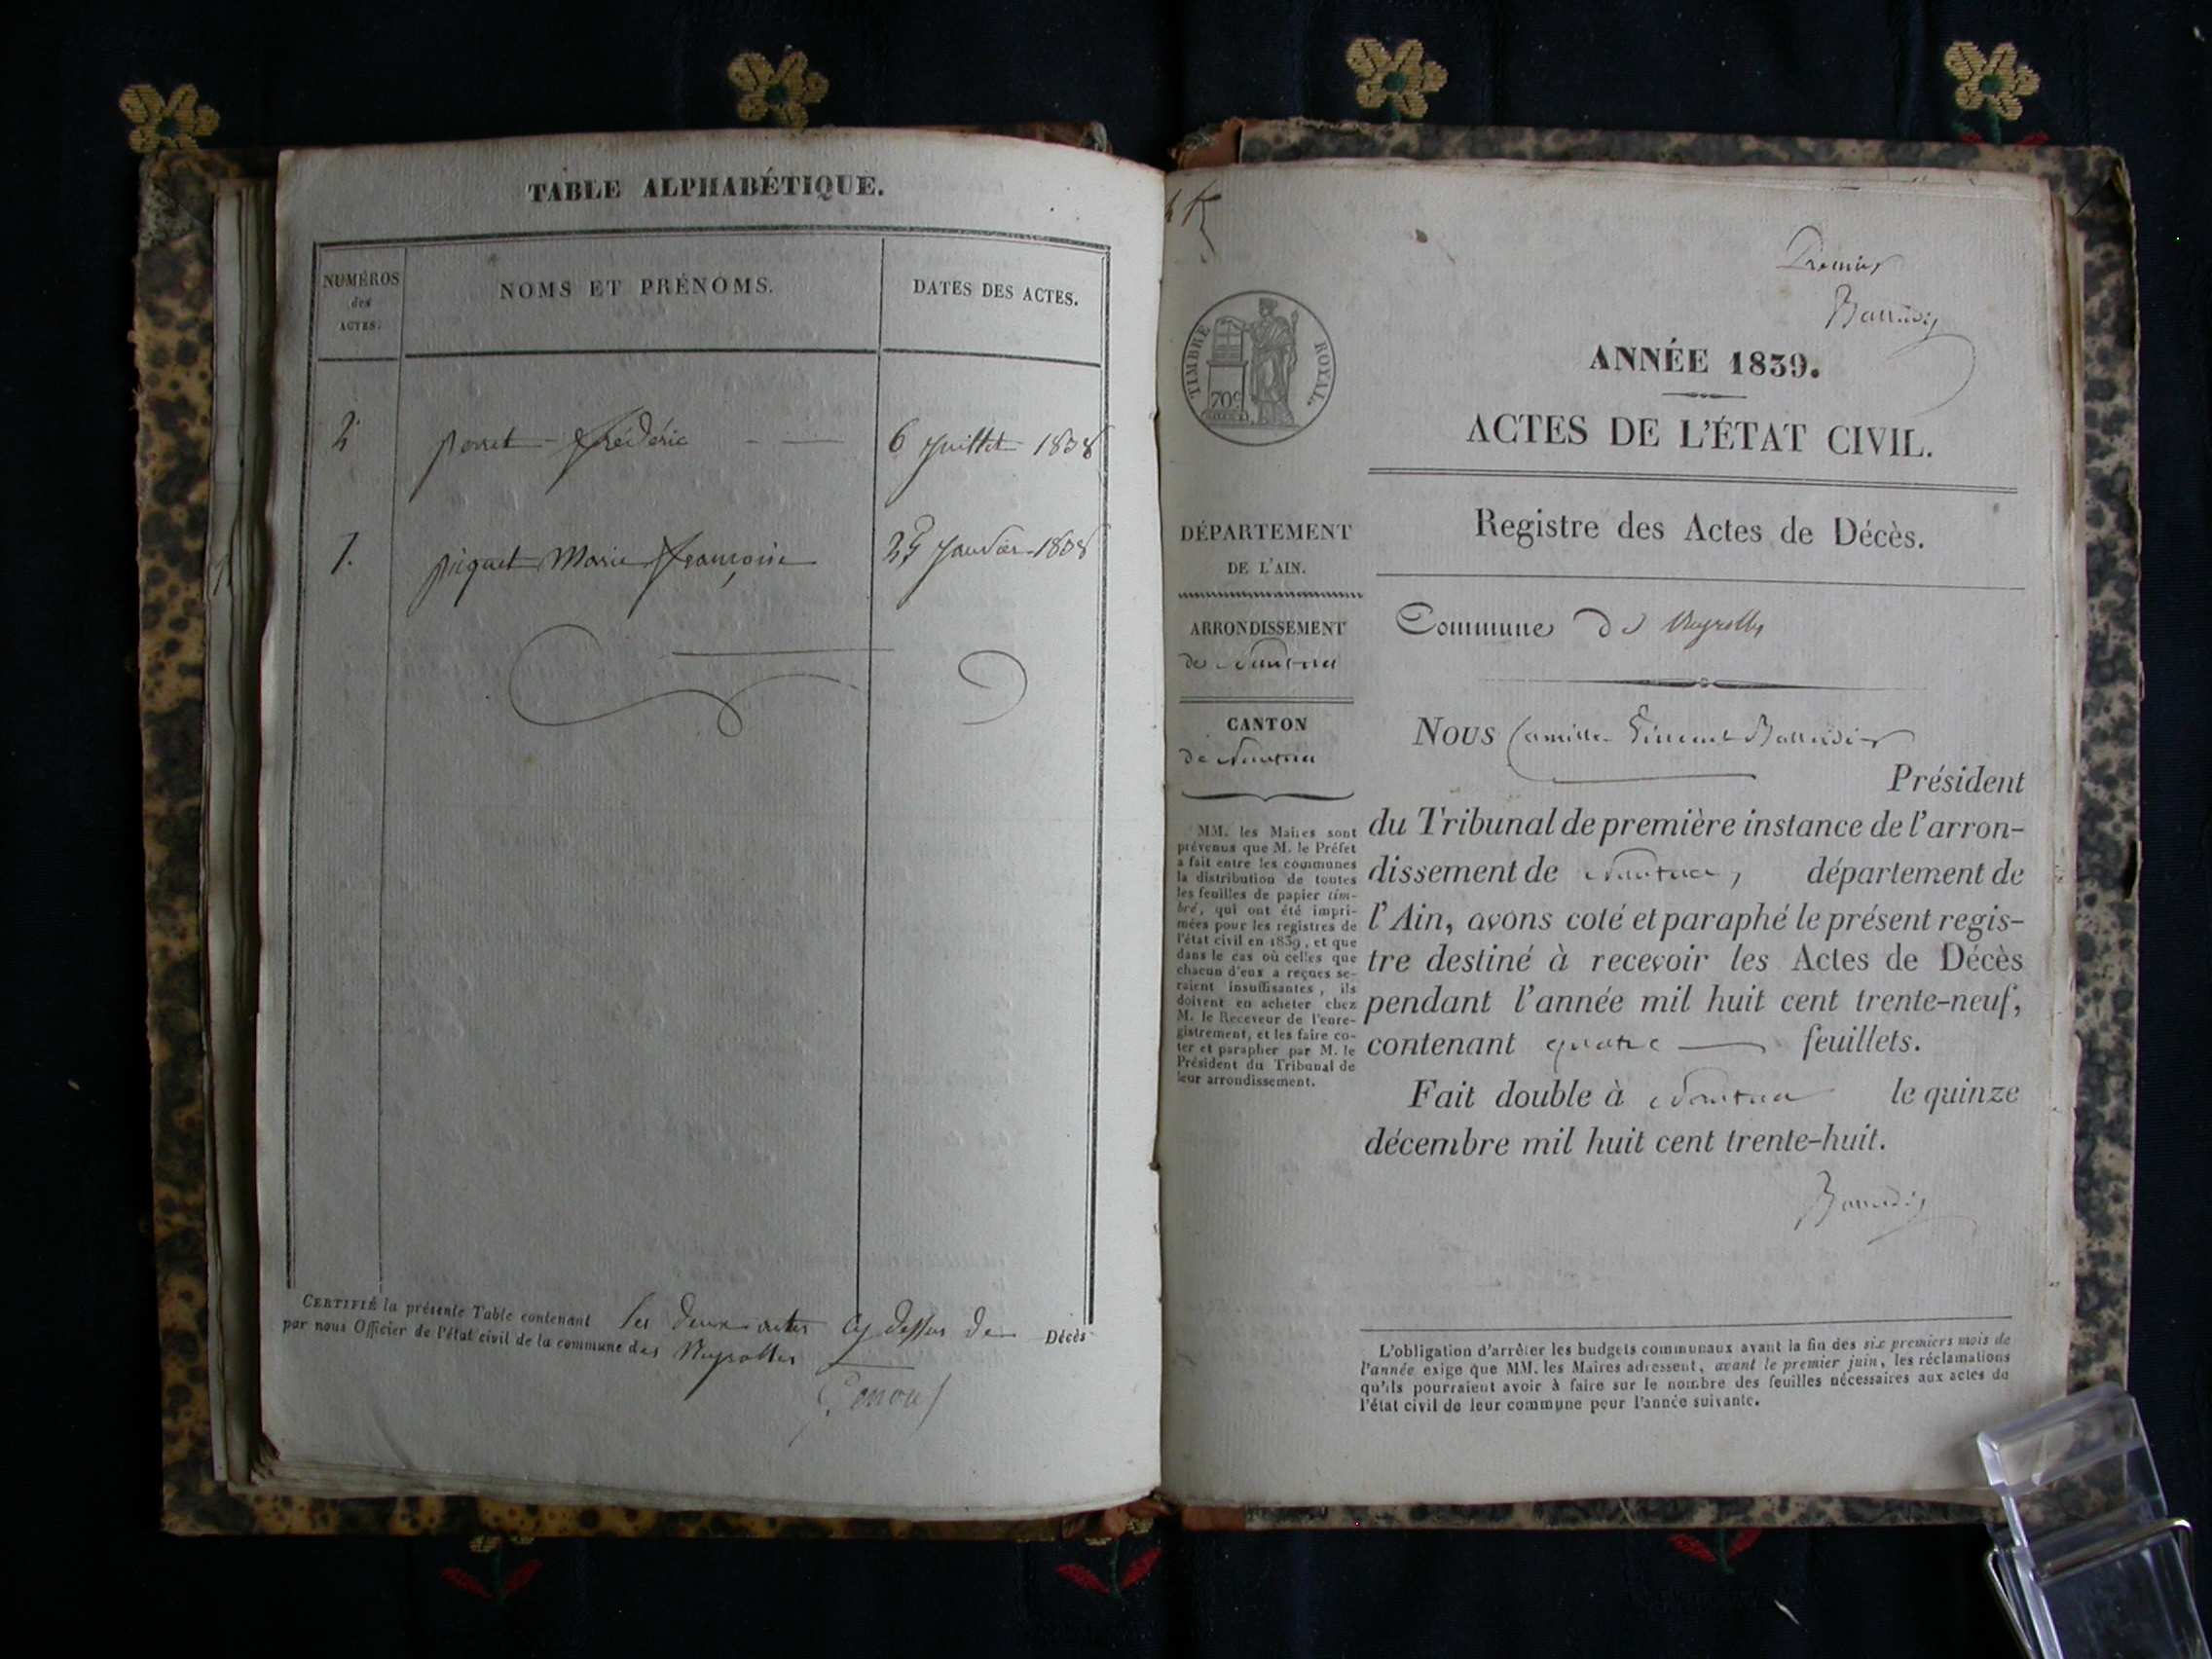 TABLE ALPHABÉTIQUE.
NUMÉROS
des
ACTES.
NOMS ET PRÉNOMS.
DATES DES ACTES.
2 ponet Frédéric 6 Juillet 1838
1. piquet Marie françoise Janvier 1838
CERTIFIÉ la présente Table contenant les deux actes cy dessus de Décès
par nous Officier de l'état civil de la commune des Neyrolles
Premier
TIMBRE ROYAL.
70c
ANNÉE 1839.
ACTES DE L'ÉTAT CIVIL.
Registre des Actes de Décès.
DÉPARTEMENT
DE L'AIN.
ARRONDISSEMENT
de Nantua
CANTON
de Nantua
MM. les Maires sont
prévenus que M. le Préfet
a fait entre les communes
la distribution de toutes
les feuilles de papier tim-
bré, qui ont été impri-
mées pour les registres de
l'état civil en 1839, et que
dans le cas où celles que
chacun d'eux a reçues se-
raient insuffisantes, ils
doivent en acheter chez
M. le Receveur de l'enre-
gistrement, et les faire co-
ter et parapher par M. le
Président du Tribunal de
leur arrondissement.
Commune de Neyrolles
Nous Camille Vincent
Président
du Tribunal de première instance de l'arron-
dissement de Nantua, département de
l'Ain, avons coté et paraphé le présent regis-
tre destiné à recevoir les Actes de Décès
pendant l'année mil huit cent trente-neuf,
contenant quatre feuillets.
Fait double à Nantua le quinze
décembre mil huit cent trente-huit.
L'obligation d'arrêter les budgets communaux avant la fin des six premiers mois de
l'année exige que MM. les Maires adressent, avant le premier juin, les réclamations
qu'ils pourraient avoir à faire sur le nombre des feuilles nécessaires aux actes de
l'état civil de leur commune pour l'année suivante.